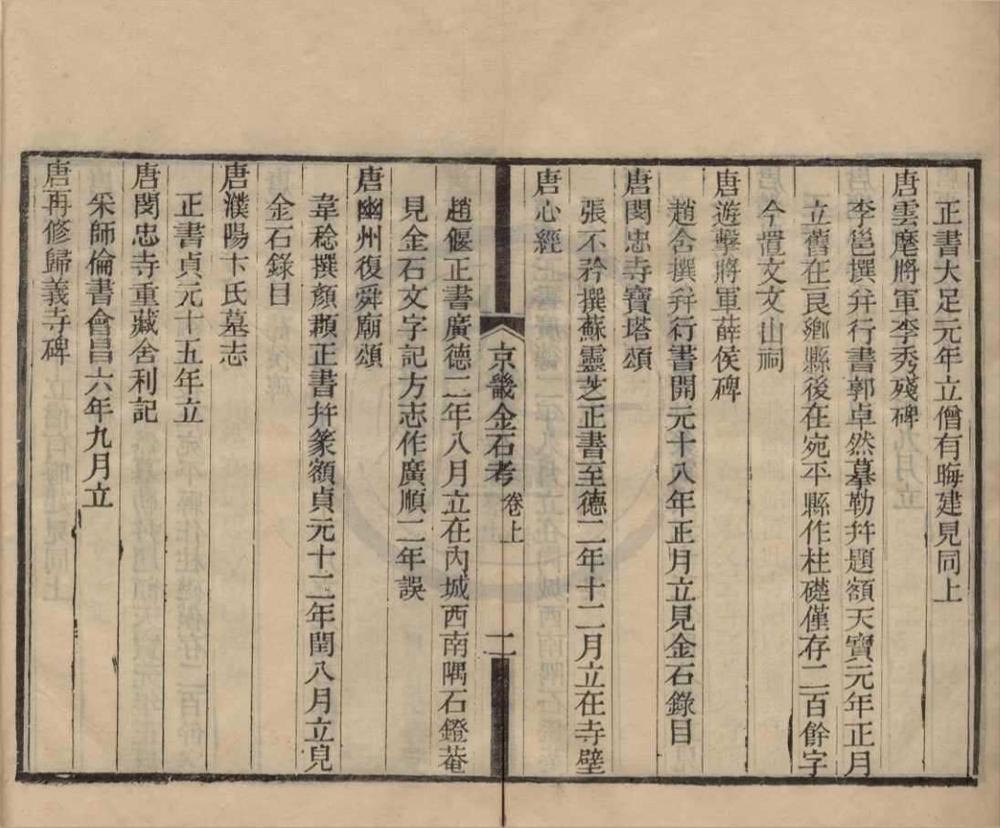 正書大足元年立僧有晦建見同上
唐雲麾將軍李秀殘碑
李邕撰幷行書郭卓然摹勒幷題額天寶元年正月
立舊在良鄉縣後在宛平縣作柱礎僅存二百餘字
今置文文山祠
唐遊擊將軍薛侯碑
趙含撰幷行書開元十八年正月立見金石錄目
唐閔忠寺寶塔頌
張不矜撰蘇靈芝正書至德二年十二月立在寺壁
唐心經
京畿金石考 卷上 二
趙偃正書廣德二年八月立在內城西南隅石鐙菴
見金石文字記方志作廣順二年誤
唐幽州復舜廟頌
韋稔撰顏頵正書幷篆額貞元十二年閏八月立見
金石錄目
唐濮陽卞氏墓志
正書貞元十五年立
唐閔忠寺重藏舍利記
采師倫書會昌六年九月立
唐再修歸義寺碑